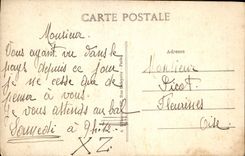 CARTE POSTALE
Monsieur
Vous ayant vu dans le
pays depuis ce jour
je ne cesse que de
penser à vous.
Je vous attends au bal
Samedi à 9h
XZ
Adresse
Monsieur
Picot
Fleurines
Oise